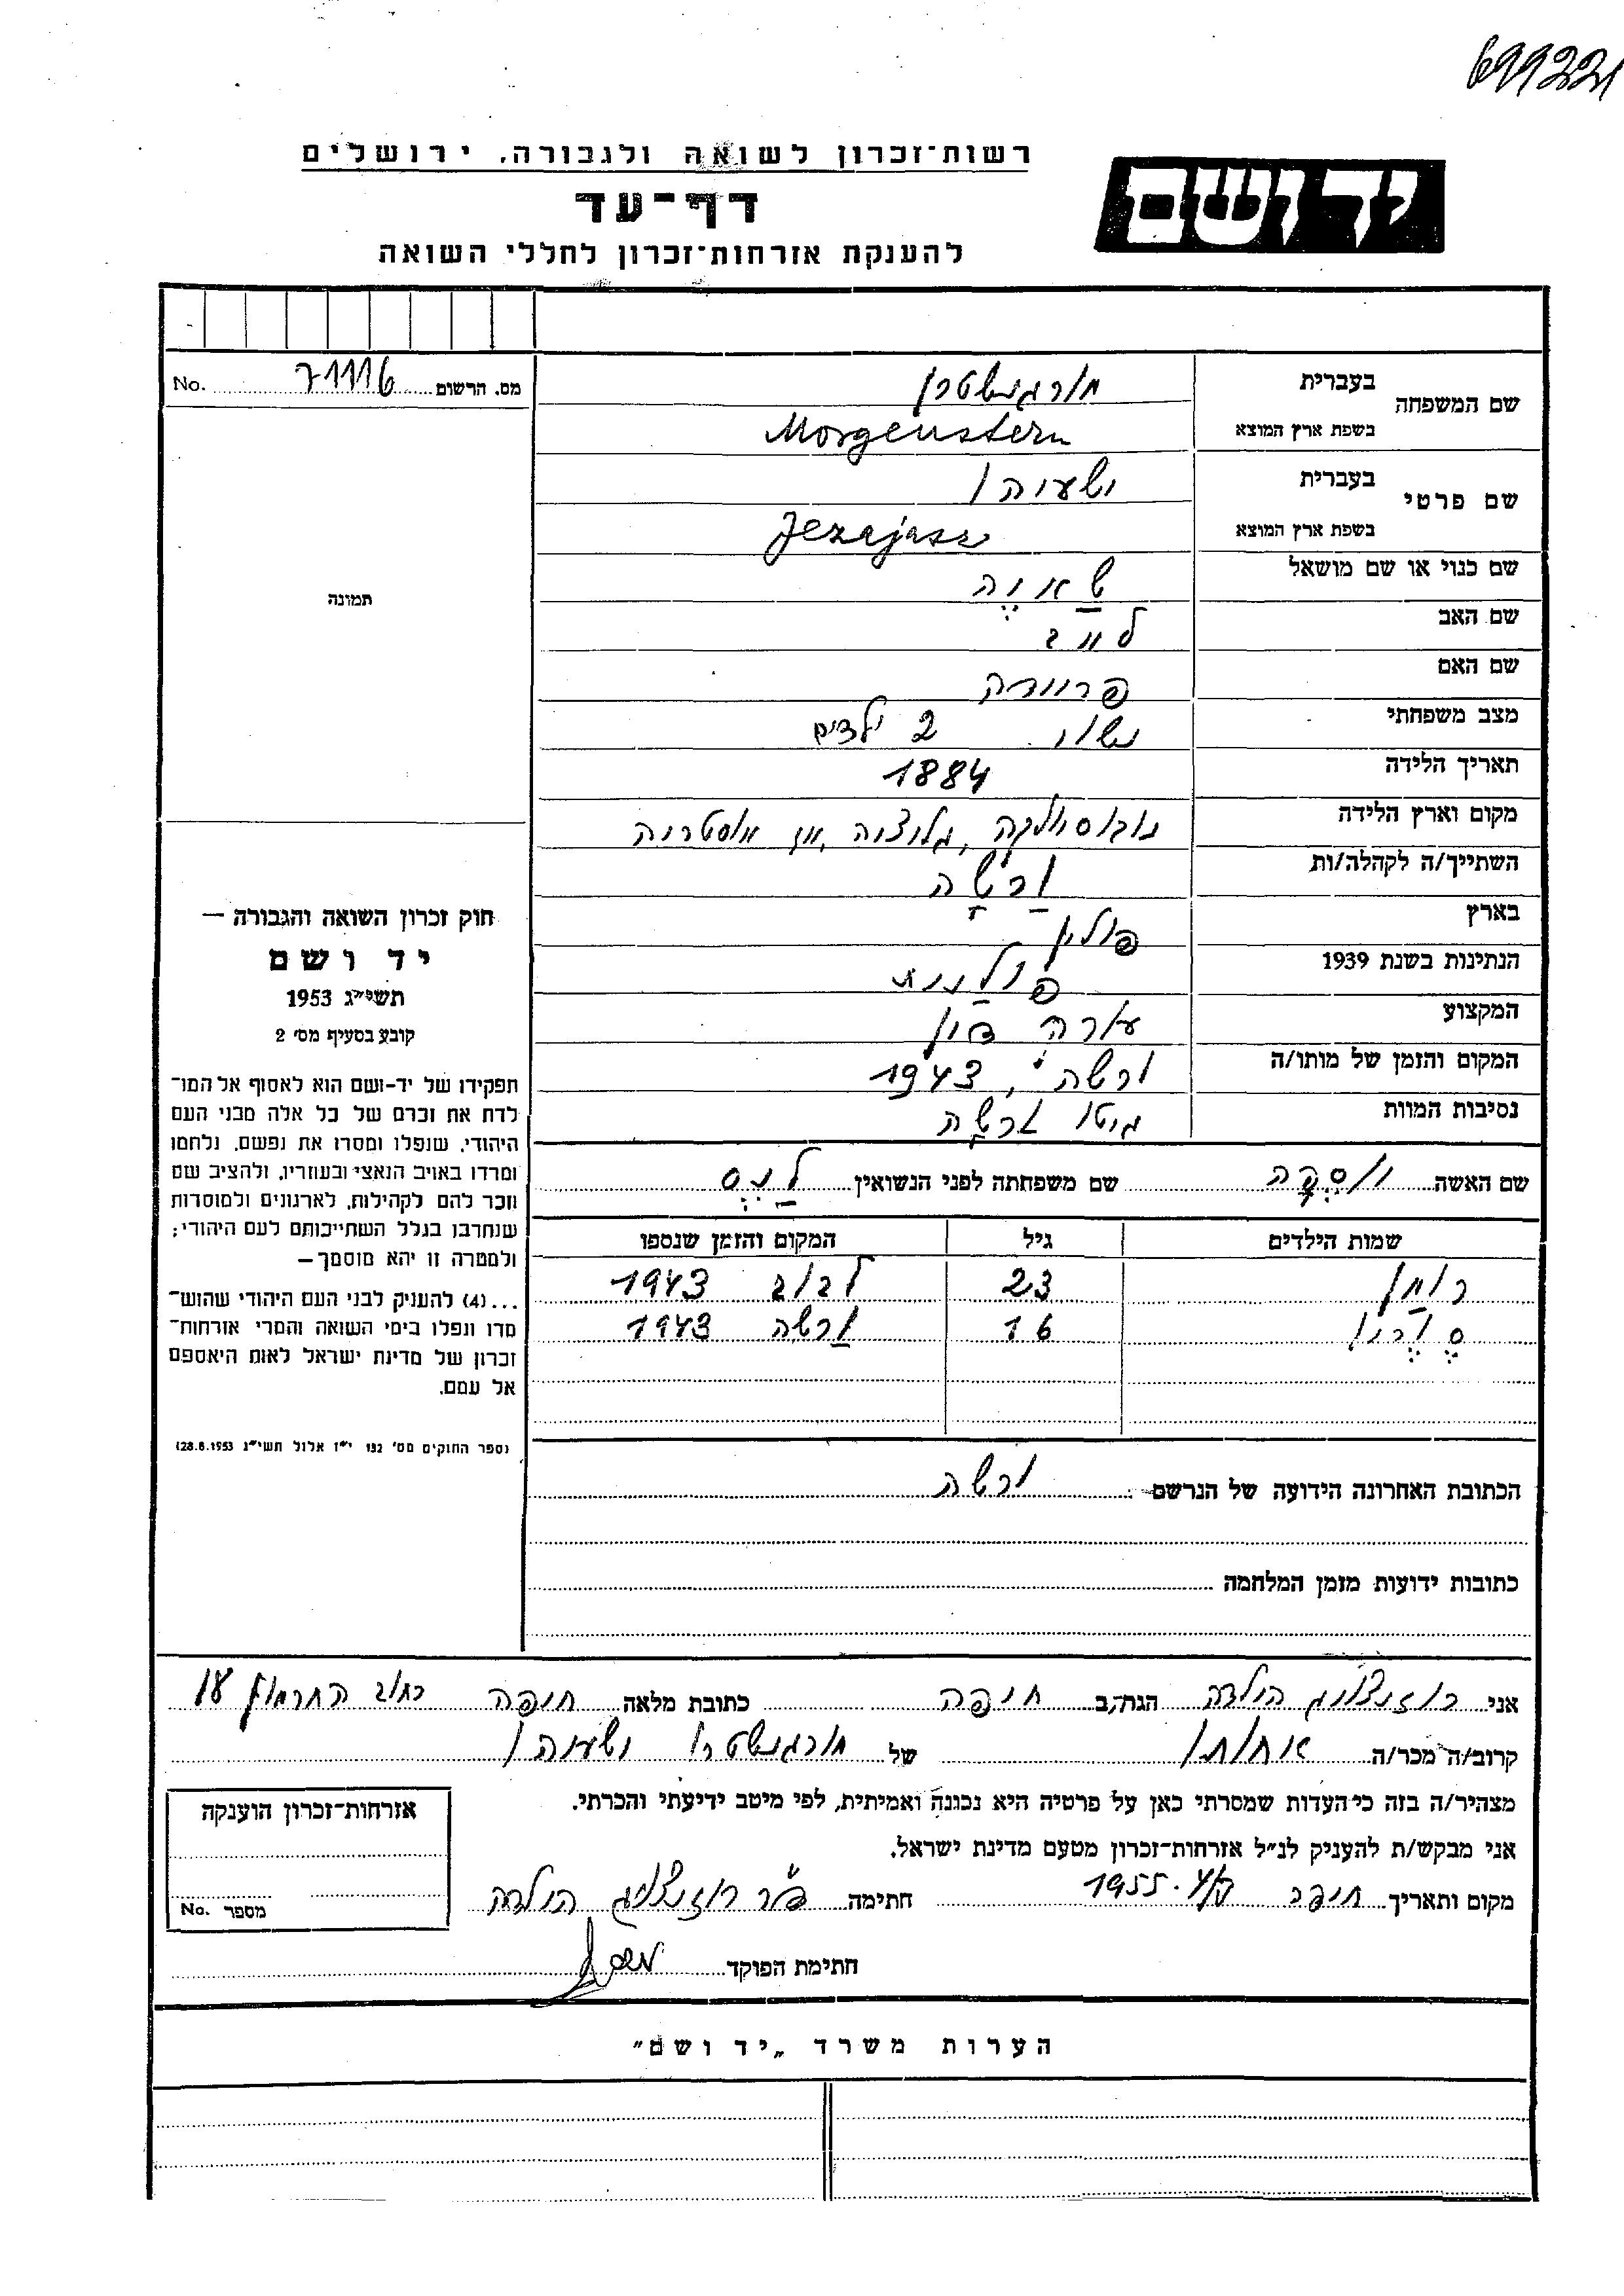 699221
רשות־זכרון לשואה ולגבורה, ירושלים
יד ושם
דף־עד
להענקת אזרחות־זכרון לחללי השואה
מס. הרשום 71116 No.
שם המשפחה בעברית מורגנשטרן
בשפת ארץ המוצא Morgenstern
שם פרטי בעברית ישעיהו
בשפת ארץ המוצא Jezajasz
שם כנוי או שם מושאל
תמונה
שם האב לייב
שם האם
מצב משפחתי נשוי 2 ילדים
תאריך הלידה 1884
מקום וארץ הלידה גליציה, אוסטריה
השתייך/ה לקהלה/ות ורשה
בארץ פולין
הנתינות בשנת 1939 פולנית
המקצוע עורך דין
המקום והזמן של מותו/ה ורשה, 1943
נסיבות המוות גיטו ורשה
חוק זכרון השואה והגבורה —
יד ושם
תשי״ג 1953
קובע בסעיף מס׳ 2
תפקידו של יד־ושם הוא לאסוף אל המו־
לדת את זכרם של כל אלה מבני העם
היהודי, שנפלו ומסרו את נפשם, נלחמו
ומרדו באויב הנאצי ובעוזריו, ולהציב שם
וזכר להם לקהילות, לארגונים ולמוסדות
שנחרבו בגלל השתייכותם לעם היהודי;
ולמטרה זו יהא מוסמך—
...(4) להעניק לבני העם היהודי שהוש־
מדו ונפלו בימי השואה והמרי אזרחות־
זכרון של מדינת ישראל לאות היאספם
אל עמם.
(ספר החוקים מס׳ 132 י״ז אלול תשי״ג 28.8.1953)
שם האשה שם משפחתה לפני הנשואין
שמות הילדים גיל המקום והזמן שנספו
רומן 23 לבוב 1943
16 ורשה 1943
הכתובת האחרונה הידועה של הנרשם ורשה
כתובות ידועות מזמן המלחמה
אני הולדה הגר/ה ב חיפה כתובת מלאה חיפה רחוב
קרוב/ה מכר/ה אחותו של מורגנשטרן ישעיהו
מצהיר/ה בזה כי העדות שמסרתי כאן על פרטיה היא נכונה ואמיתית, לפי מיטב ידיעתי והכרתי.
אני מבקש/ת להעניק לנ״ל אזרחות־זכרון מטעם מדינת ישראל.
מקום ותאריך חיפה 1955 חתימה ד״ר הולדה
חתימת הפוקד
אזרחות־זכרון הוענקה
מספר No.
הערות משרד „יד ושם״